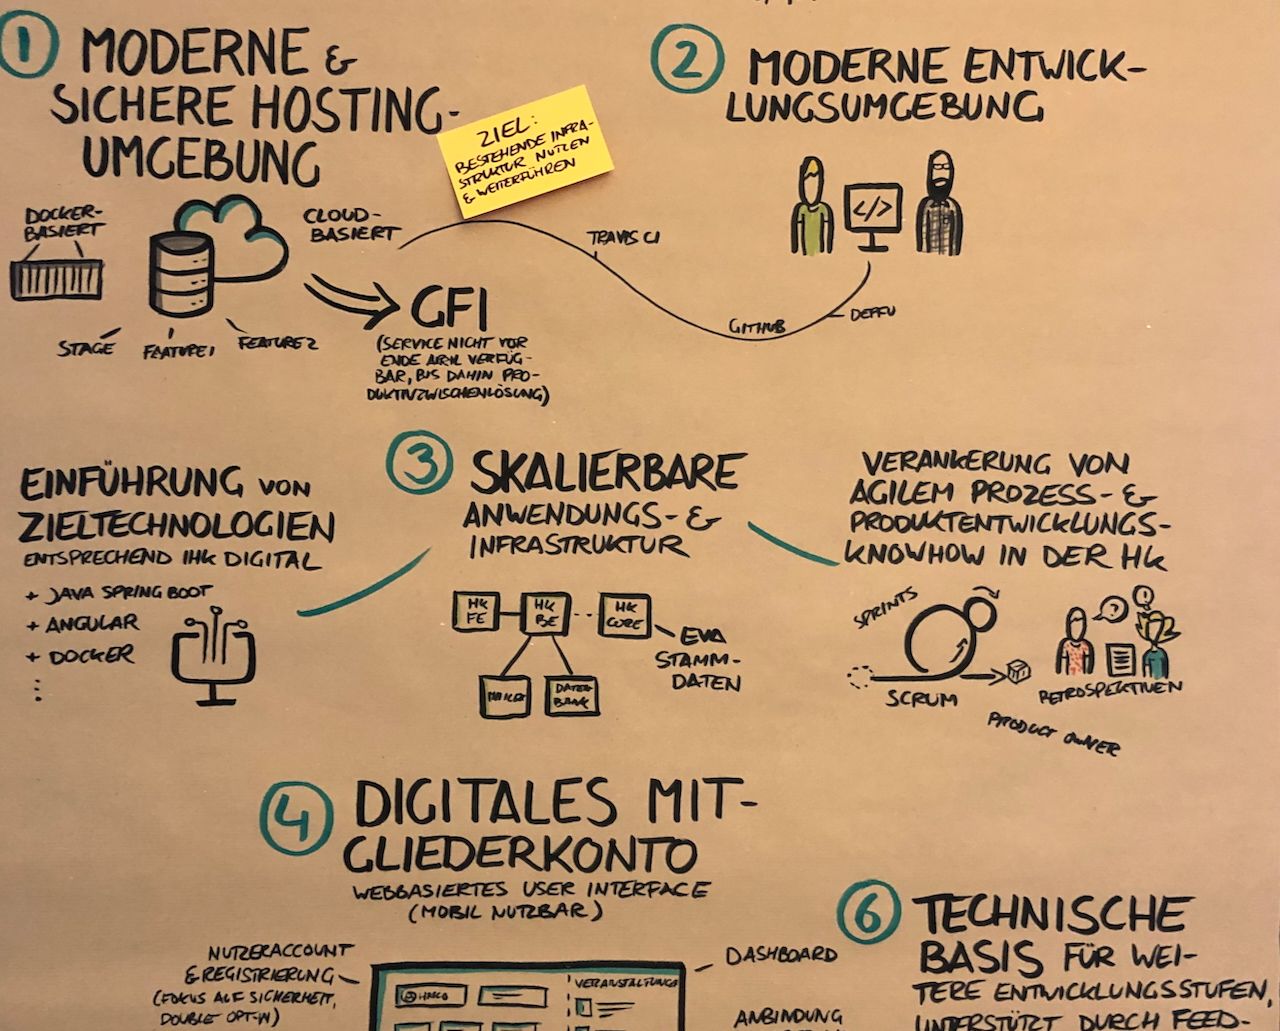 1 MODERNE &
SICHERE HOSTING-
UMGEBUNG
ZIEL:
BESTEHENDE INFRA-
STRUKTUR NUTZEN
& WEITERFÜHREN
DOCKER-
BASIERT
CLOUD-
BASIERT
STAGE
FEATURE1
FEATURE2
GFI
(SERVICE NICHT VOR
ENDE APRIL VERFÜG-
BAR, BIS DAHIN PRO-
DUKTIVZWISCHENLÖSUNG)
2 MODERNE ENTWICK-
LUNGSUMGEBUNG
</>
TRAVIS CI
GITHUB
DEPFU
EINFÜHRUNG VON
ZIELTECHNOLOGIEN
ENTSPRECHEND IHK DIGITAL
+ JAVA SPRING BOOT
+ ANGULAR
+ DOCKER
3 SKALIERBARE
ANWENDUNGS- &
INFRASTRUKTUR
HK
FE
HK
BE
HK
CORE
EVA
STAMM-
DATEN
MAILER
DATEN
BANK
VERANKERUNG VON
AGILEM PROZESS- &
PRODUKTENTWICKLUNGS-
KNOWHOW IN DER HK
SPRINTS
SCRUM
?
!
RETROSPEKTIVEN
PRODUCT OWNER
4 DIGITALES MIT-
GLIEDERKONTO
WEBBASIERTES USER INTERFACE
(MOBIL NUTZBAR)
NUTZERACCOUNT
& REGISTRIERUNG
(FOKUS AUF SICHERHEIT,
DOUBLE OPT-IN)
VERANSTALTUNGEN
DASHBOARD
ANBINDUNG
6 TECHNISCHE
BASIS FÜR WEI-
TERE ENTWICKLUNGSSTUFEN,
UNTERSTÜTZT DURCH FEED-